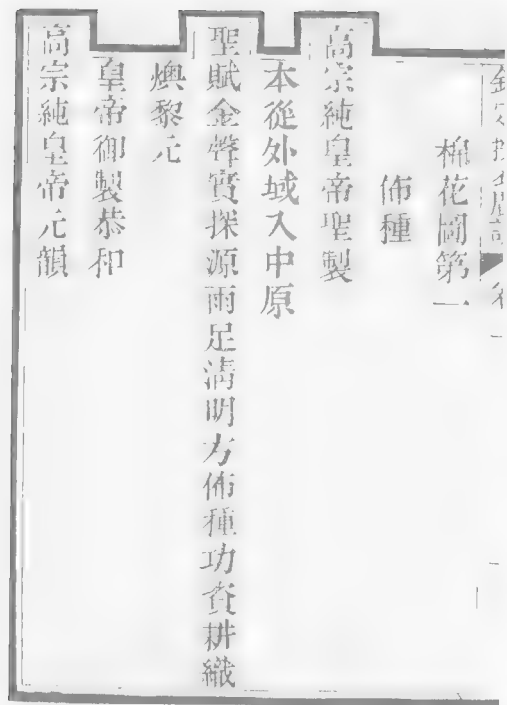 欽定授衣廣訓 卷
棉花圖第一
佈種
高宗純皇帝聖製
本從外域入中原
聖賦金聲實探源雨足清明方佈種功資耕織
燠黎元
皇帝御製恭和
高宗純皇帝元韻